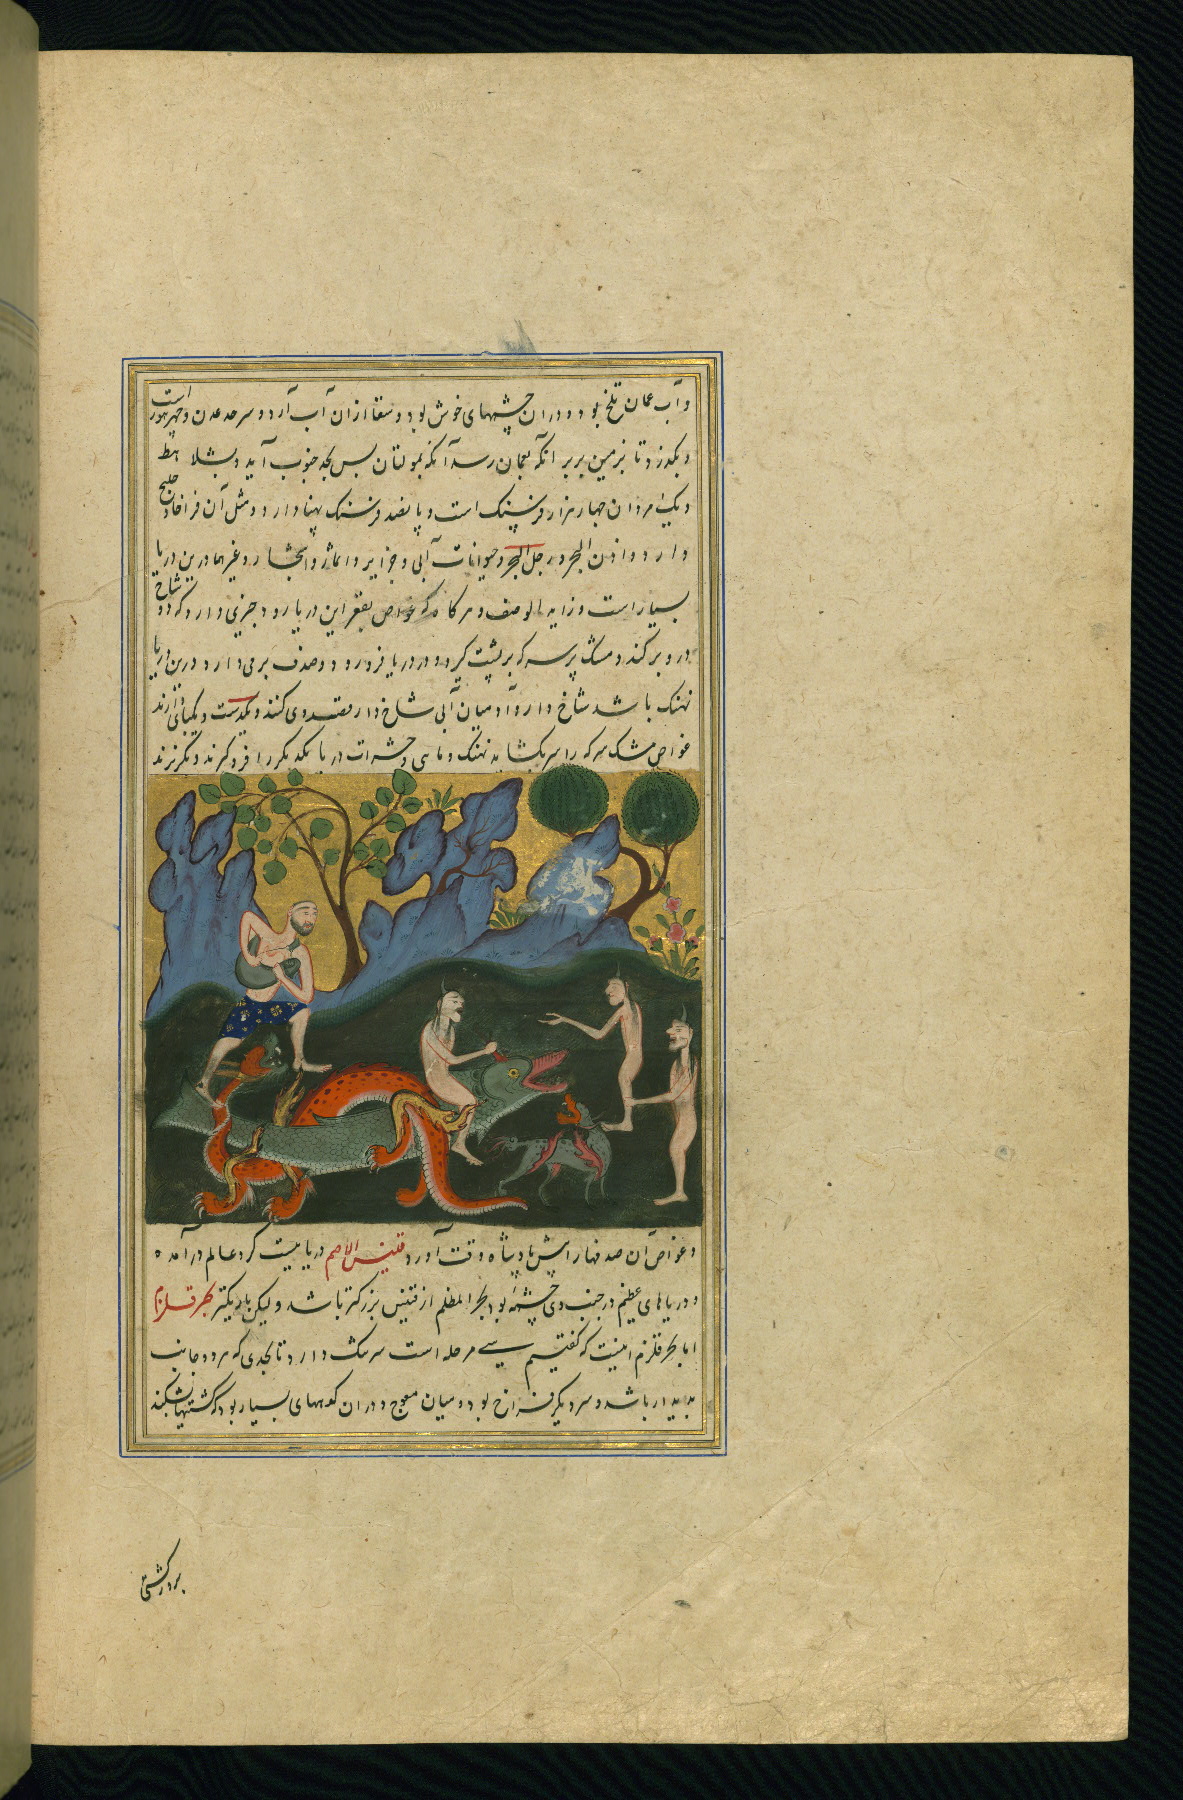 وآب عمان تلخ بود و دران چشمهای خوش بود و سقا ازان آب آرد و سرحد عدن و است
و بگذرد تا بزمین بربر آنگه بعمان رسد آنگه بمولتان پس بحد جنوب آید و بشلا هط
و یک مردان چهار هزار فرسنگ است و پانصد فرسنگ پهنا دارد و مثل آن فراخا و خلیج
دارد و اذن البحر و رجل البحر و حیوانات آبی و جزایر و و غیرها درین دریا
بسیار است و زاید الوصف و هرگاه که غواص بقعر این دریا رود چیزی دارد که دو شاخ
درو بر کند و مشک پر سرکه بر پشت گیرد و در دریا فرو رود و صدف برمی دارد و درین دریا
نهنک باشد شاخ دار و آدمیان آبی شاخ دار قصد وی کنند و بیکدست و یکپای دارند
غواص مشک سرکه را سر بکشاید نهنک و ماهی و حشرات دریا یکدیکر را فرو کیرند و بکریزند
و غواص آن صدفها را پیش پادشاه وقت آورد قنینس الاصم دریاییست کرد عالم در آمده
و دریاهای عظیم در جنب وی چشمهٔ بود بحر المظلم از قنینس بزرکتر باشد ولیکن باریکتر بحر قلزم
اما بحر قلزم اینست که کفتیم سی مرحله است سر تنک دارد تا بحدی که هر دو جانب
پدیدار باشد و سر دیکر فراخ بود و میان معوج و دران کوههای بسیار بود که کشتیها شکند
بر در کشتی